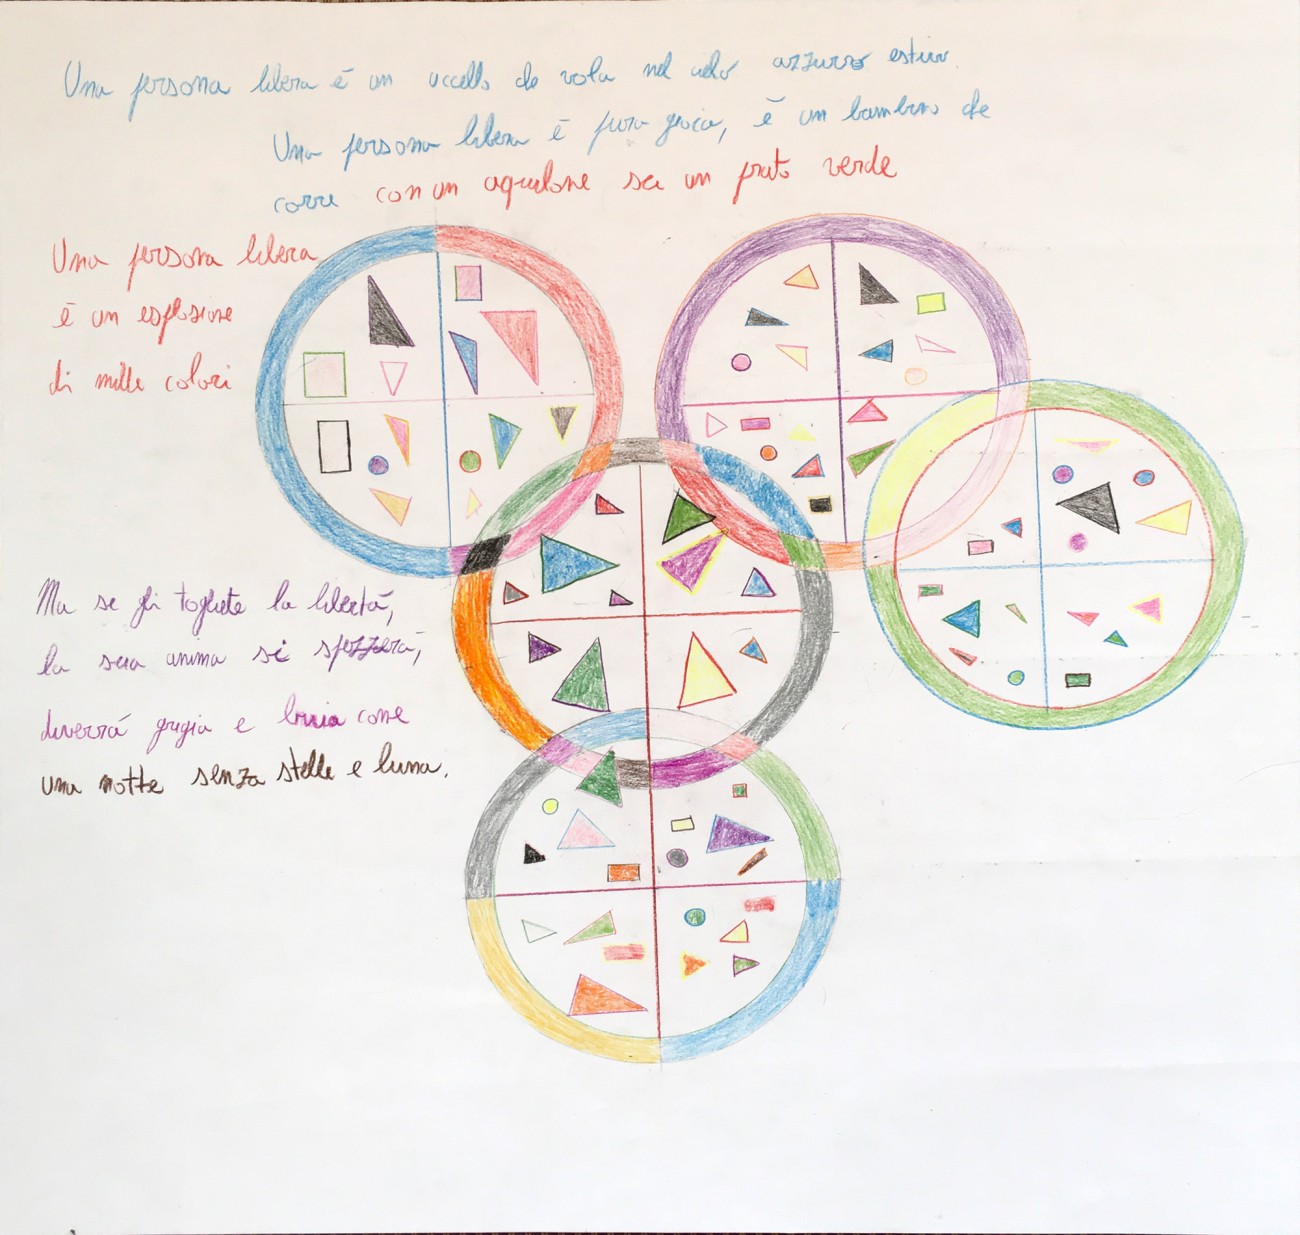 Una persona libera è un uccello che vola nel cielo azzurro estivo.
Una persona libera è pura gioia, è un bambino che
corre con un aquilone su un prato verde
Una persona libera
è un esplosione
di mille colori
Ma se gli togliete la libertà,
la sua anima si spezzerà,
diverrá grigia e buia come
una notte senza stelle e luna.